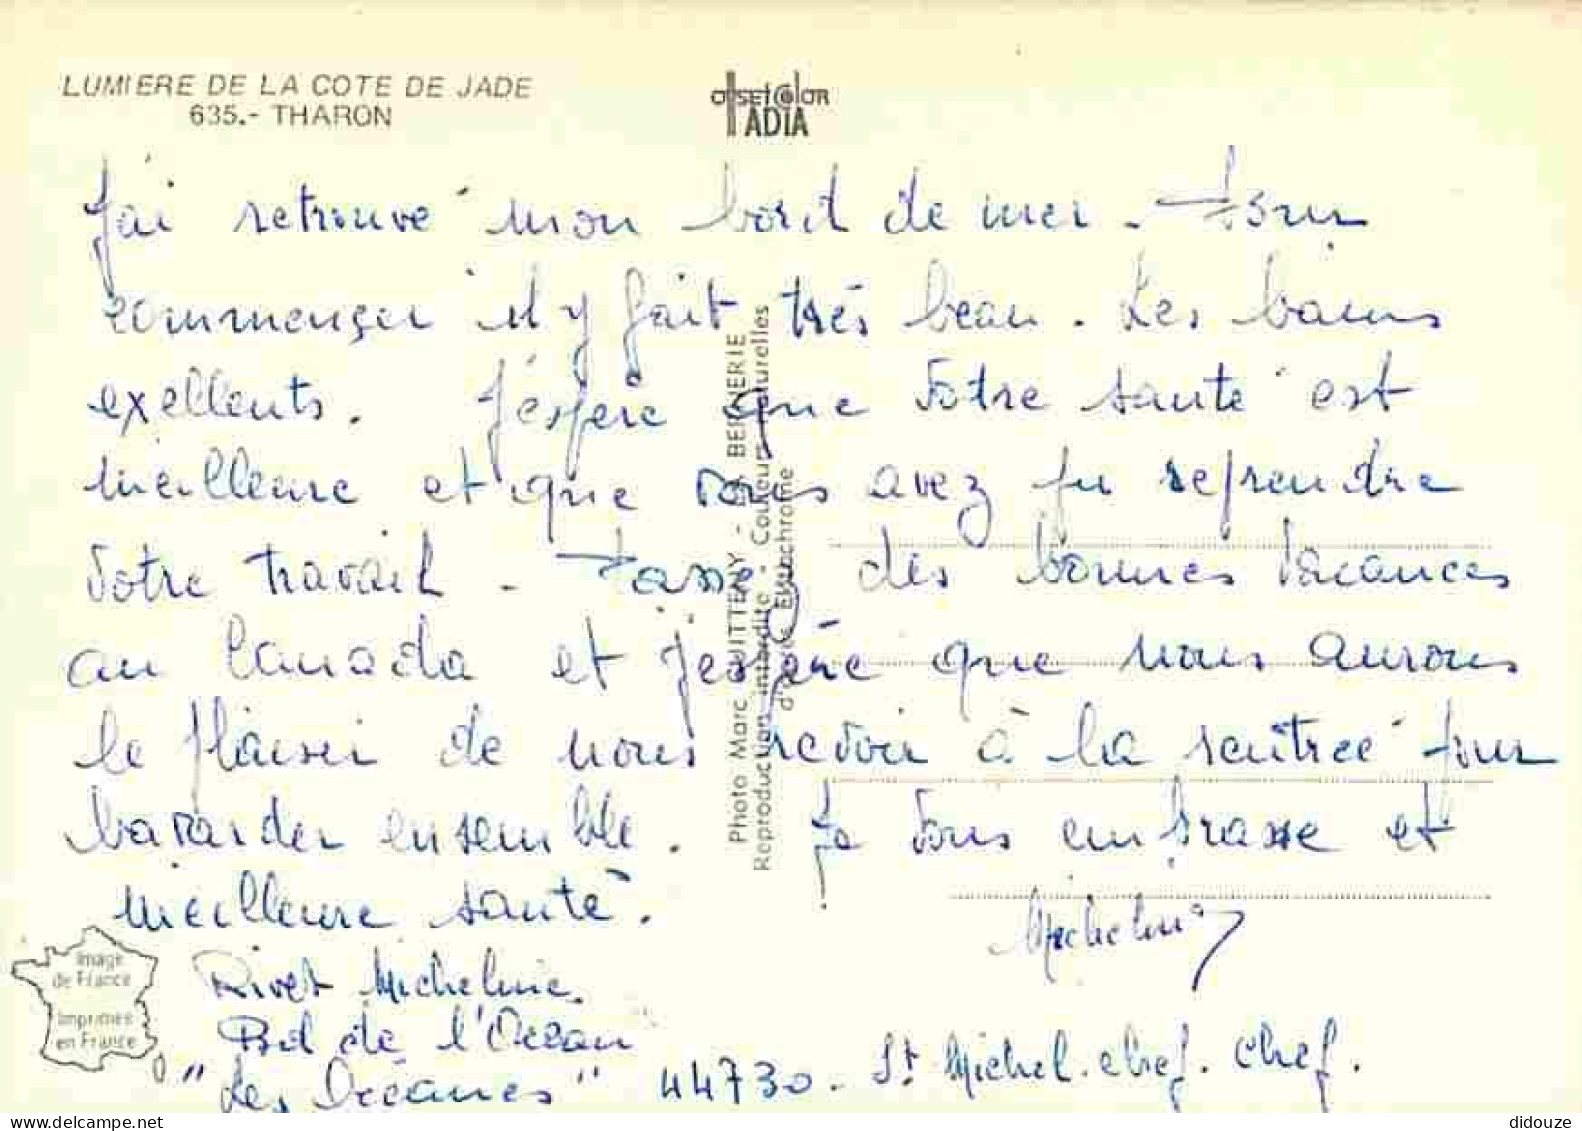 LUMIERE DE LA COTE DE JADE
635.- THARON
offsetcolor
ADIA
J'ai retrouvé mon bord de mer. Pour
commençer il y fait très beau. Les bains
exellents. J'espère que votre santé est
meilleure et que vous avez pu reprendre
votre travail - Passez des bonnes vacances
au Canada et j'espère que nous aurons
le plaisir de nous revoir à la rentrée pour
bavarder ensemble. Je vous embrasse et
meilleure santé.
Micheline
Rivet Micheline
Bd de l'Océan
"Les Océanes" 44730 - St Michel. chef. chef.
Photo Marc - LA BERNERIE
Reproduction interdite - Couleurs naturelles
d'après Ektachrome
Image
de France
Imprimés
en France
didouze